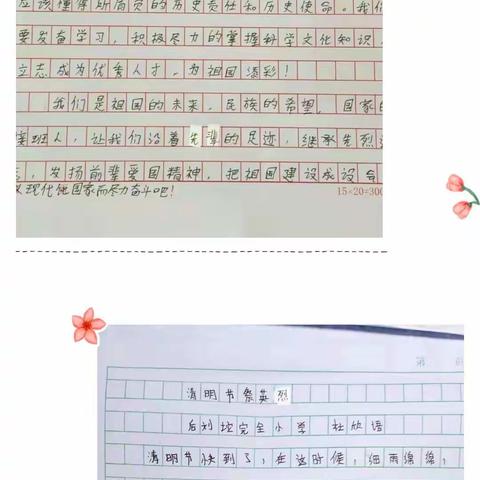 应该懂得所肩负的历史责任和历史使命。我们
要发奋学习，积极尽力的掌握科学文化知识，
立志成为优秀人才，为祖国添彩！
我们是祖国的未来，民族的希望，国家的
接班人，让我们沿着先辈的足迹，继承先烈
，发扬前辈爱国精神，把祖国建设成设会
义现代化国家而尽力奋斗吧！
15×20=300
第
清明节祭英烈
后刘坨完全小学 杜欣语
清明节快到了，在这时候，细雨绵绵，